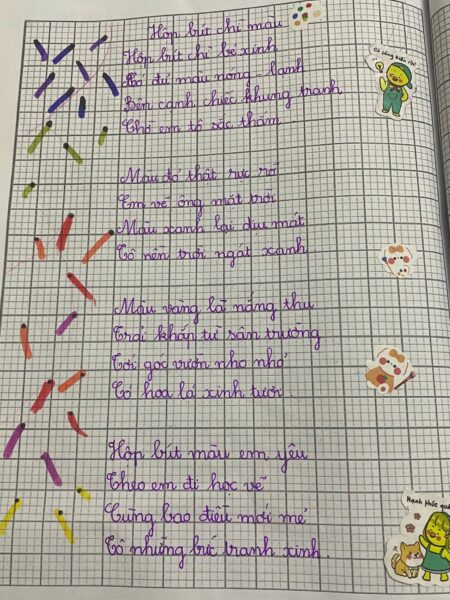 Hộp bút chì màu
Hộp bút chì bé xinh
Có đủ màu nóng - lạnh
Bên cạnh chiếc khung tranh
Chờ em tô sắc thắm
Màu đỏ thật rực rỡ
Em vẽ ông mặt trời
Màu xanh lại dịu mát
Tô nên trời ngát xanh.
Màu vàng là nắng thu
Trải khắp từ sân trường
Tới góc vườn nho nhỏ
Có hoa lá xinh tươi.
Hộp bút màu em yêu
Theo em đi học vẽ
Cùng bao điều mới mẻ
Tô những bức tranh xinh.
Cố lắng hiểu rồi!
Hạnh phúc quá